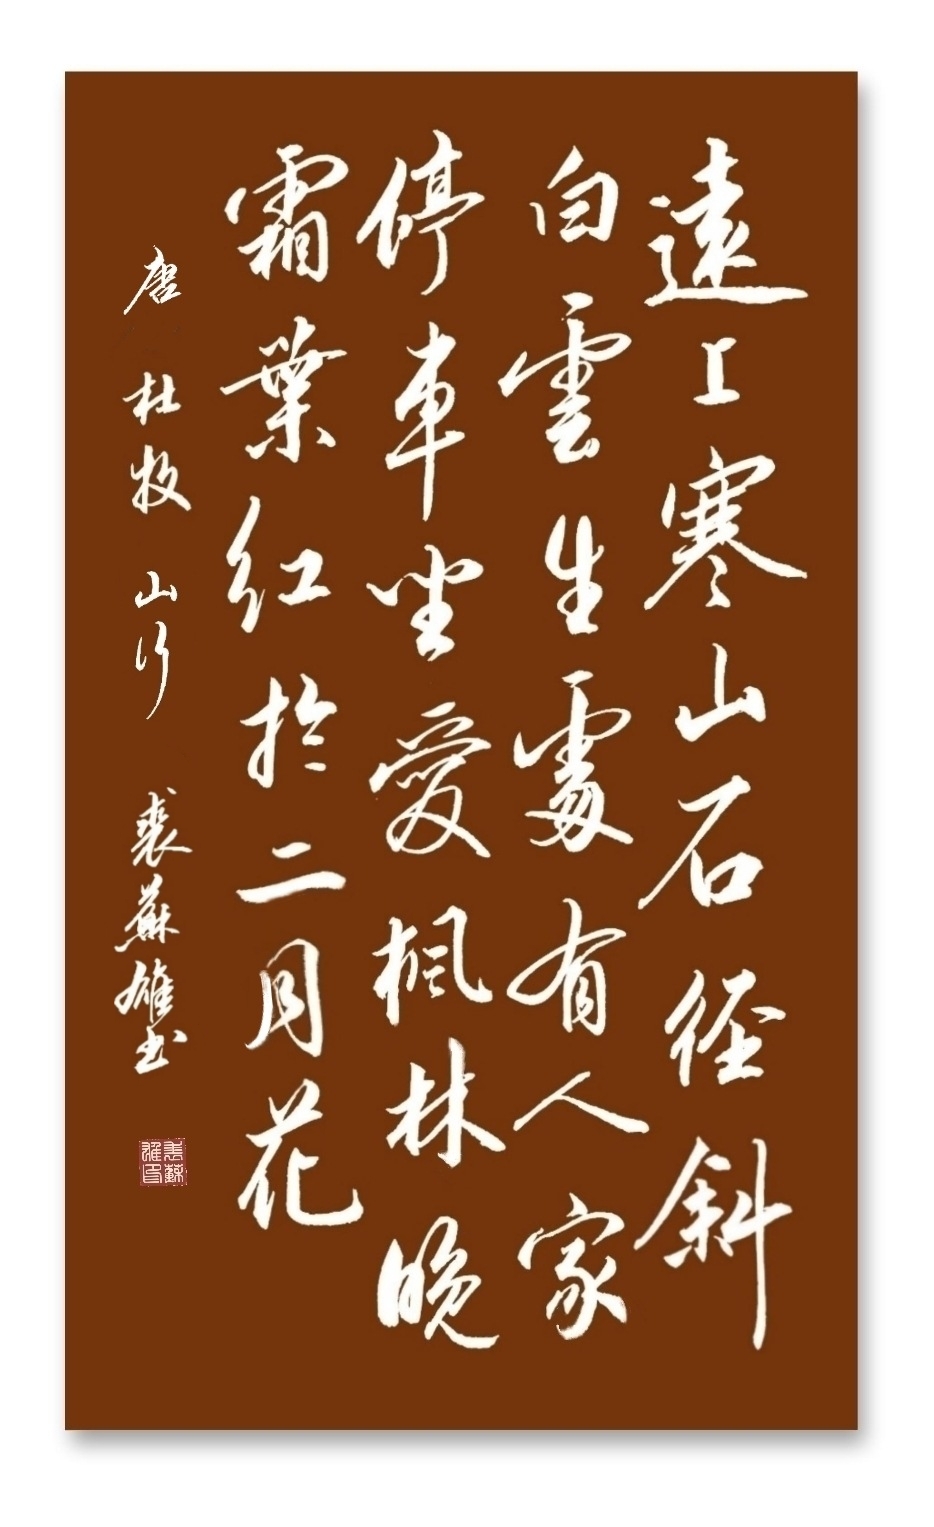 遠上寒山石径斜
白雲生處有人家
停車坐愛楓林晚
霜葉紅於二月花
唐 杜牧 山行 裘蘇雄书